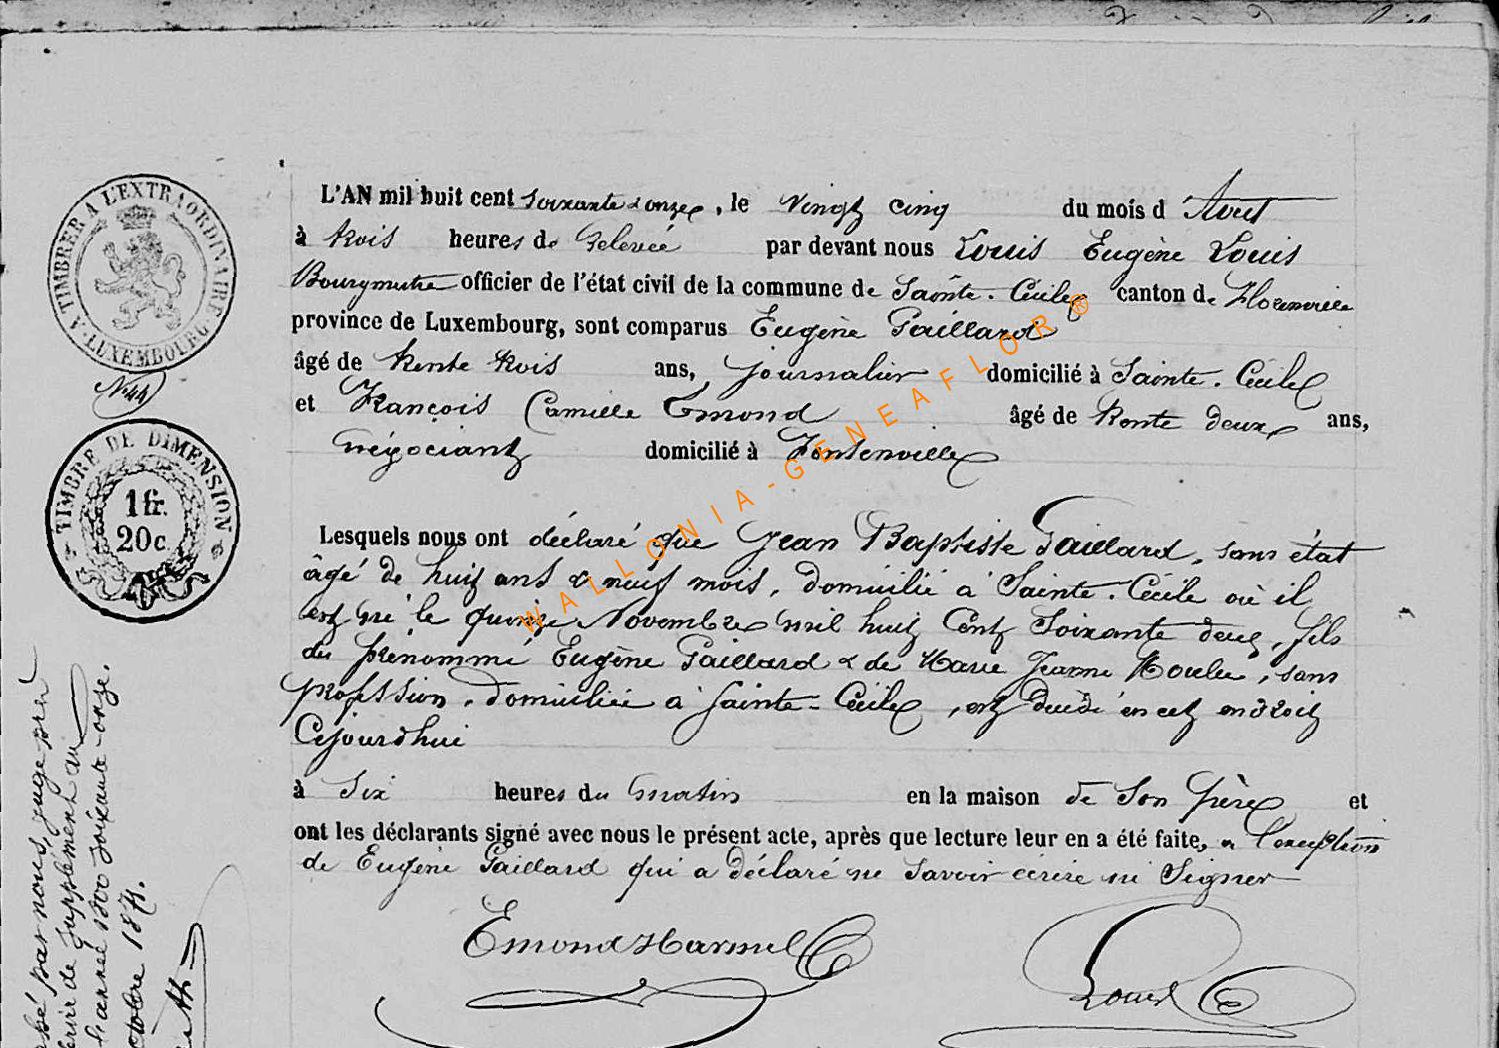 TIMBRER A L'EXTRAORDINAIRE
LUXEMBOURG
N.44
TIMBRE DE DIMENSION
1 fr.
20 c
L'AN mil huit cent soixante & onze, le Vingt cinq du mois d'Aout
à trois heures de relevée par devant nous Louis Eugène Louis
Bourgmestre officier de l'état civil de la commune de Sainte-Cécile canton de Florenville
province de Luxembourg, sont comparus Eugène Gaillard
âgé de trente trois ans, journalier domicilié à Sainte-Cécile
et François Camille Emond âgé de trente deux ans,
négociant domicilié à Fontenoille
Lesquels nous ont déclaré que Jean Baptiste Gaillard, sans état
âgé de huit ans & neuf mois, domicilié à Sainte-Cécile où il
est né le quinze Novembre mil huit Cent Soixante deux, fils
du prénommé Eugène Gaillard & de Marie Jeanne, sans
profession, domiciliée à Sainte-Cécile, est décédé en cet endroit
Cejourdhui
à Six heures du matin en la maison de Son père et
ont les déclarants signé avec nous le présent acte, après que lecture leur en a été faite, à l'exception
de Eugène Gaillard qui a déclaré ne savoir écrire ni Signer
Emond Harmel
Louis
par nous, juge
de supplément au
l'année 1800 soixante-onze.
octobre 1871.
WALLONIA-GENEAFLOR®